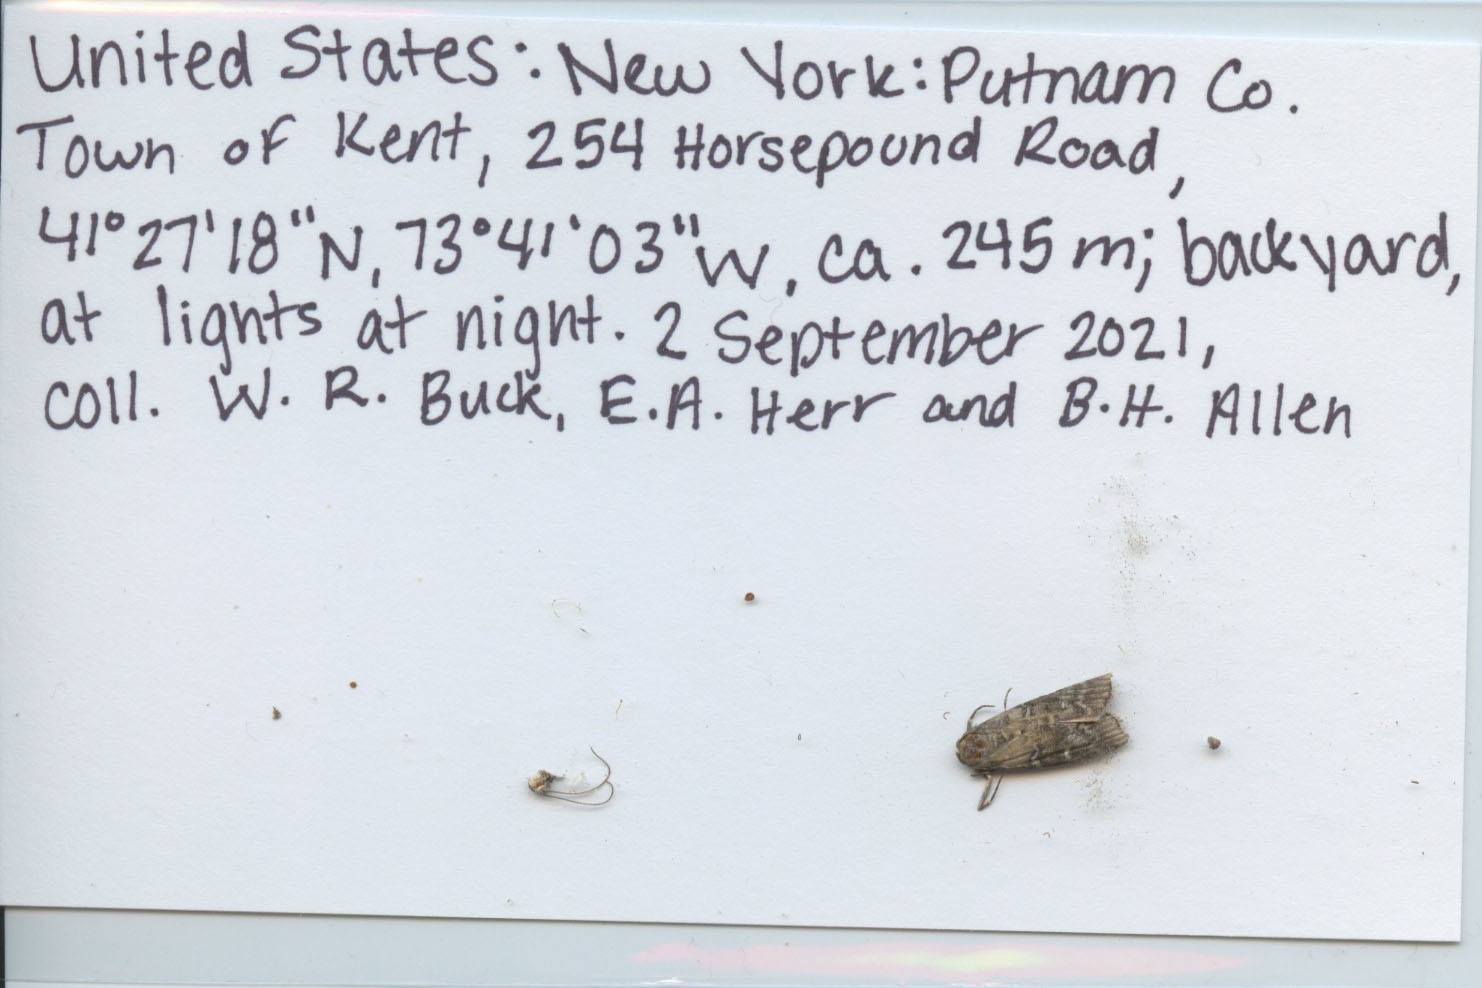 United States: New York: Putnam Co.
Town of Kent, 254 Horsepound Road,
41°27'18"N, 73°41'03"W, ca. 245 m; backyard,
at lights at night. 2 September 2021,
coll. W. R. Buck, E.A. Herr and B.H. Allen